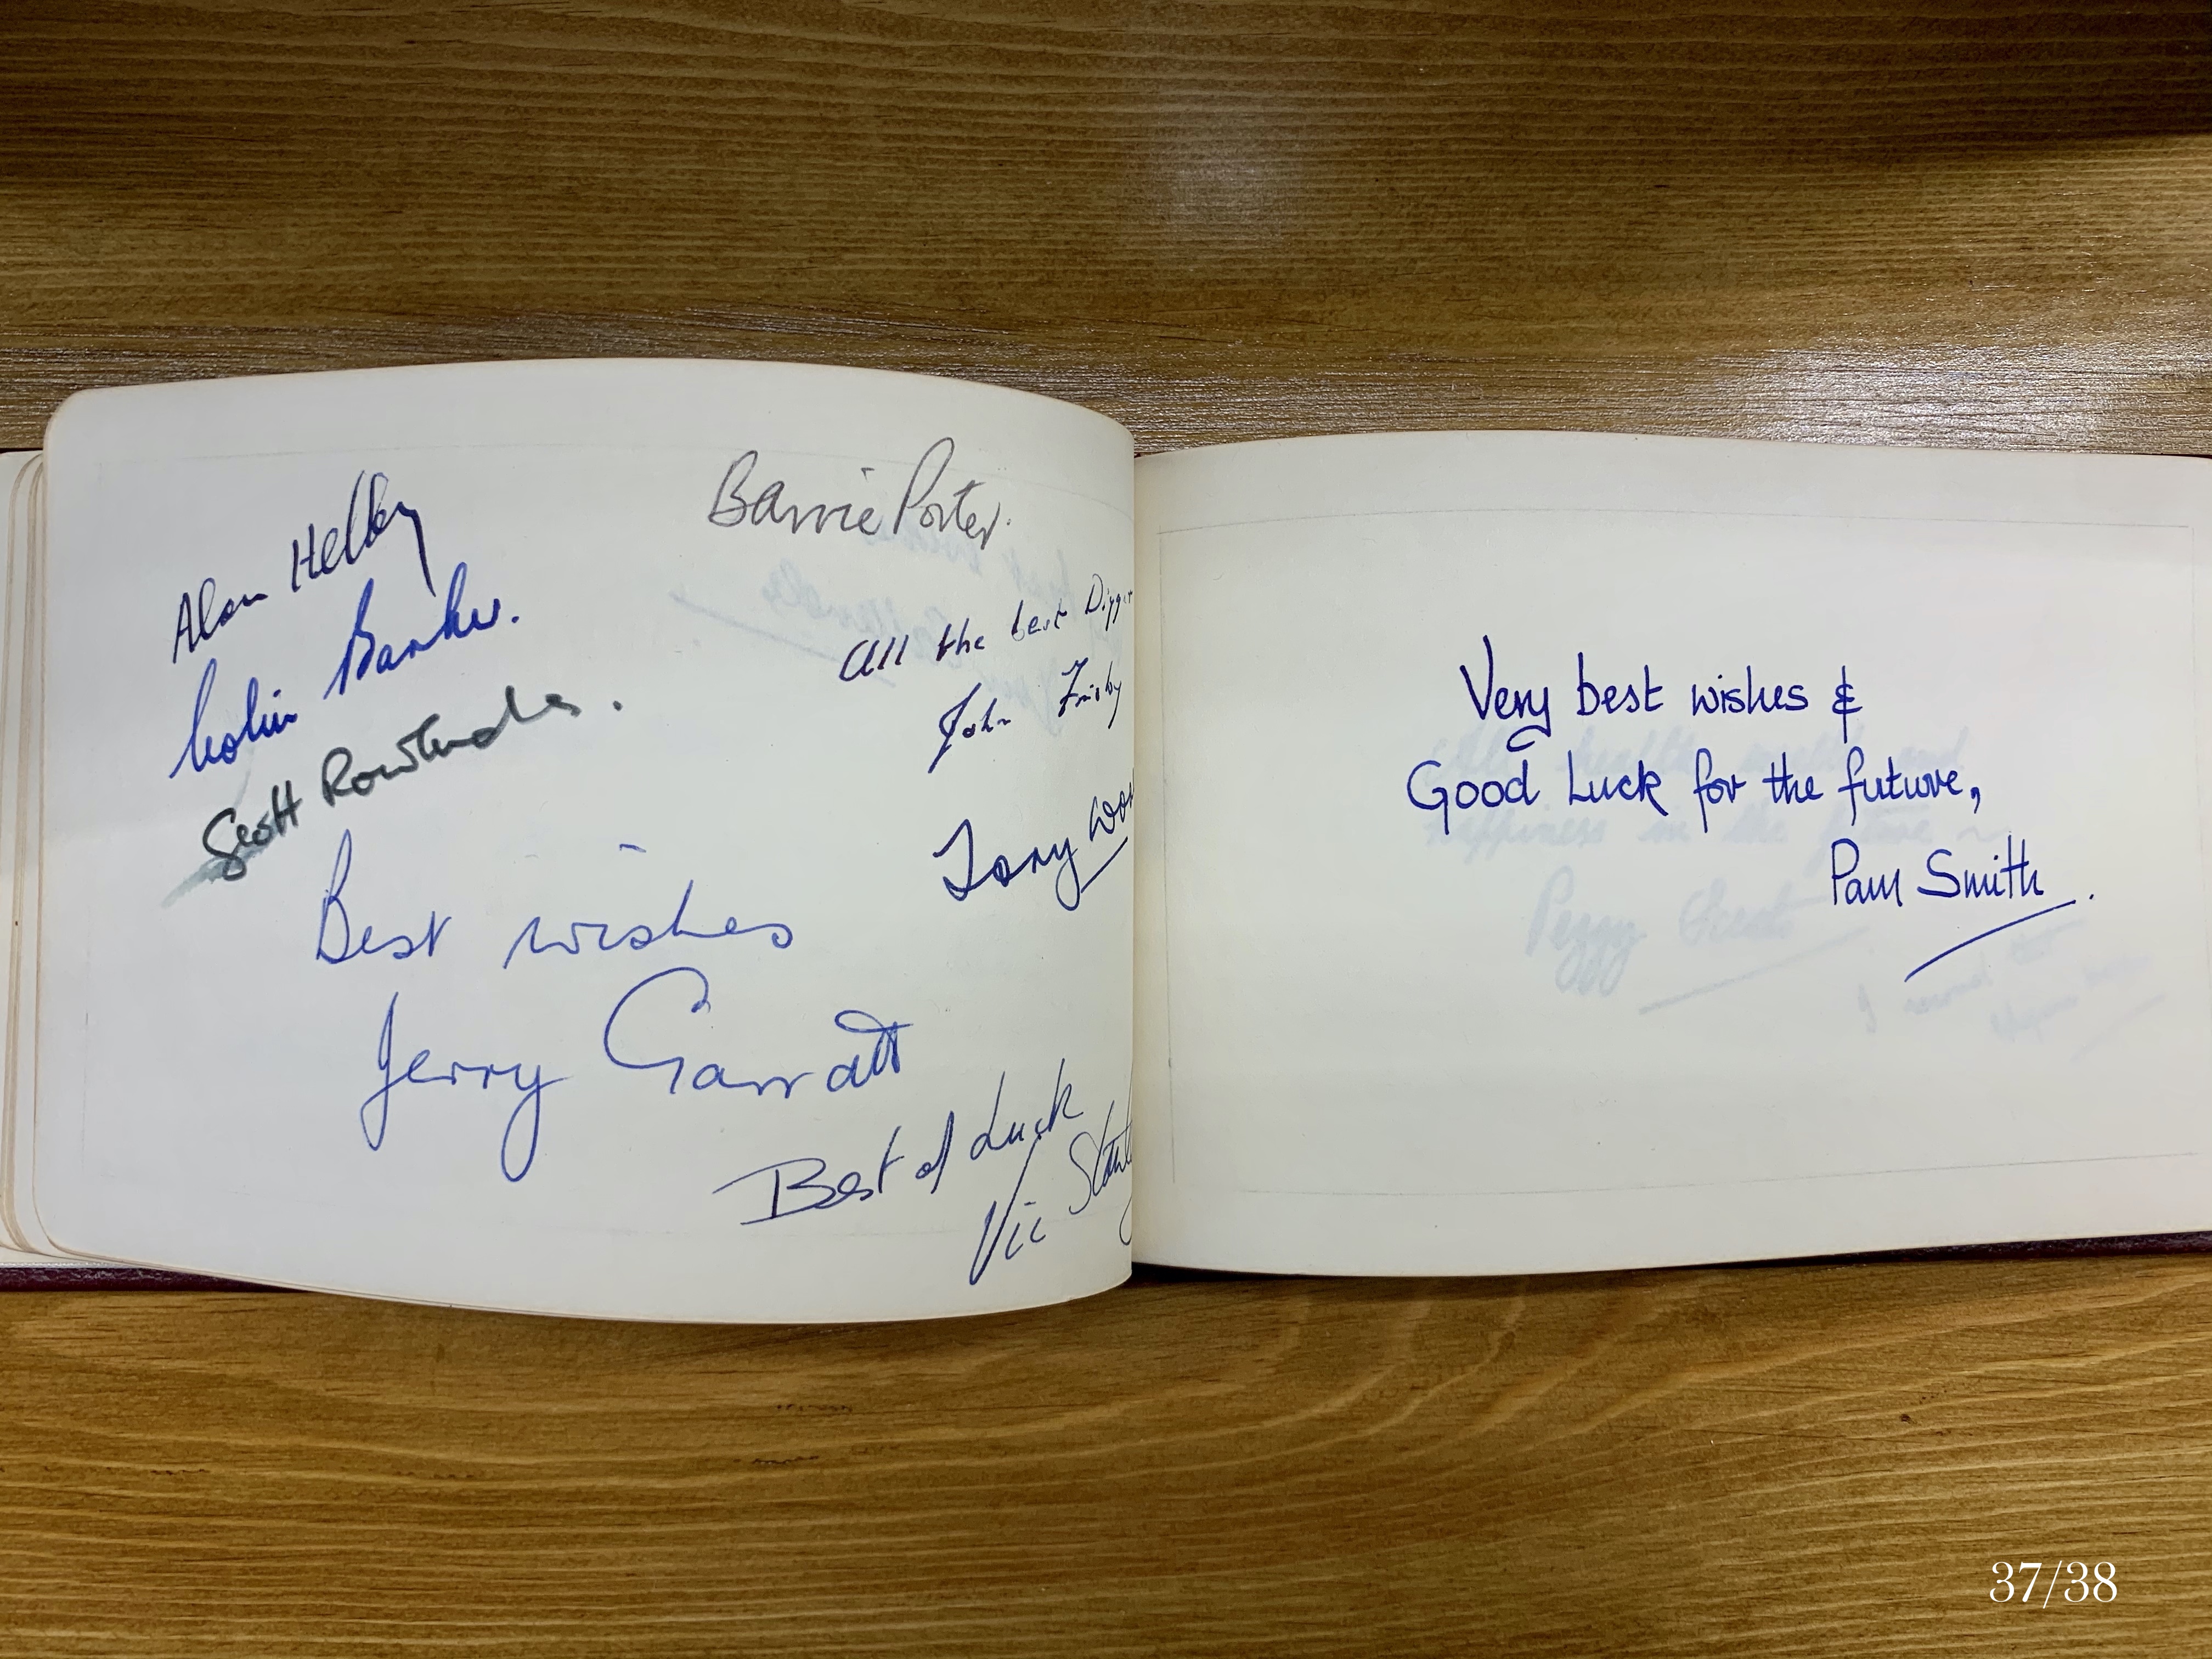 Alan Helby
Colin Barker.
Scott Rowlands.
Barrie Porter.
All the best
John Frisby
Tony
Best wishes
Jerry Garratt
Best of Luck
Vic
Very best wishes &
Good Luck for the future,
Pam Smith.
37/38